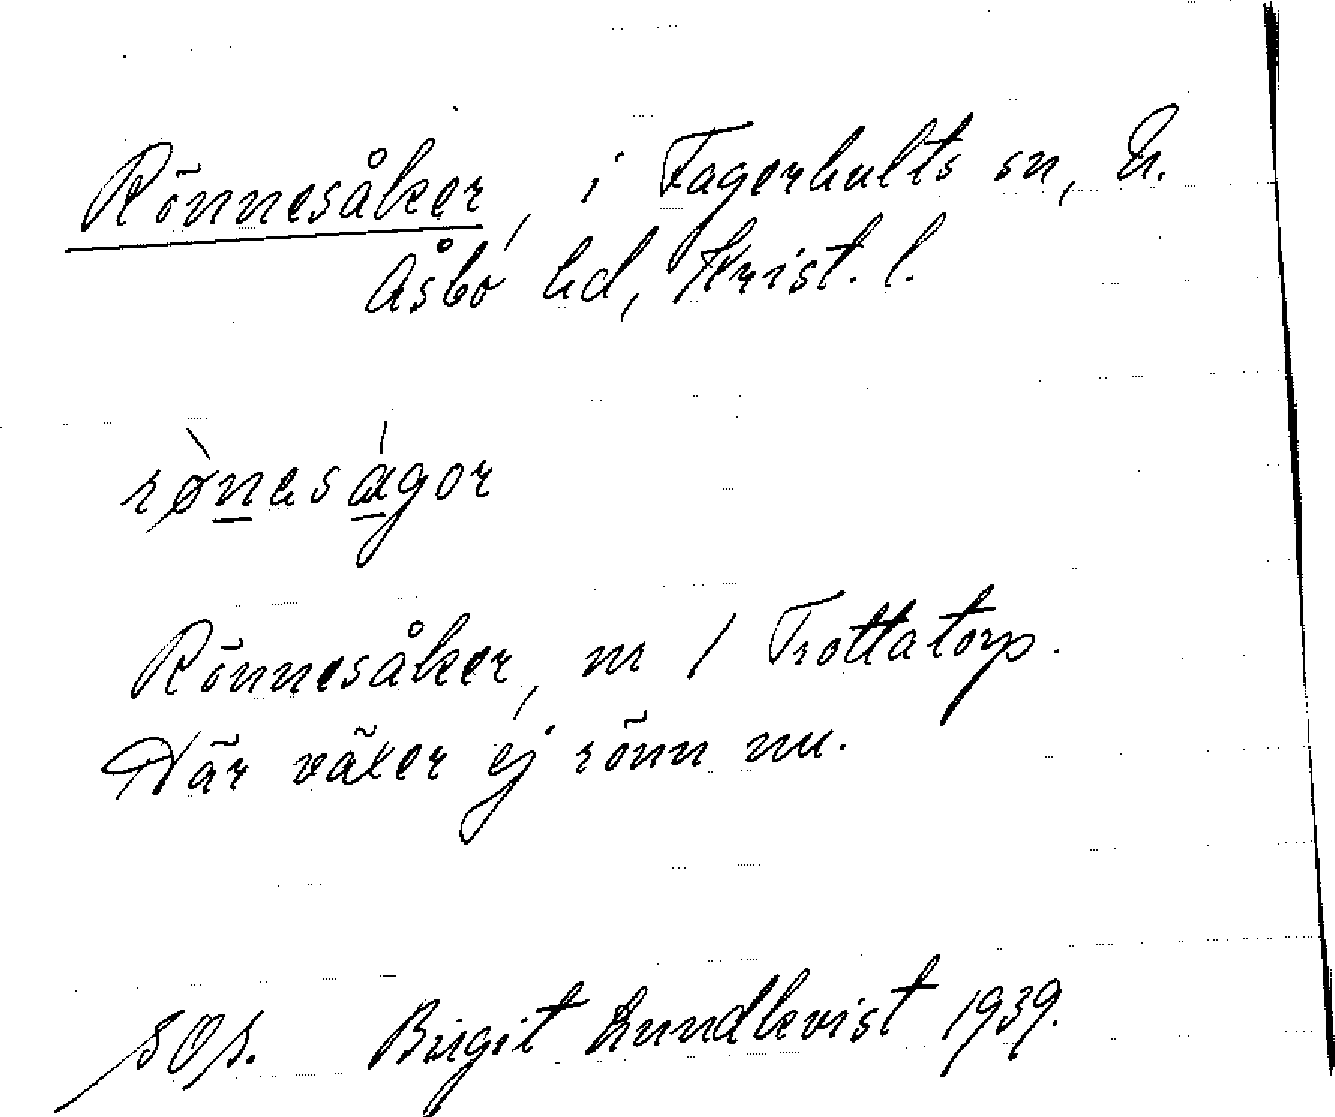 Rönnesåker, i Fagerhults sn, N.
Åsbo hd, Krist. l.
rønasagor
Rönnesåker, nr 1 Trottatorp.
Där växer ej rönn nu.
Birgit Lundkvist 1939.